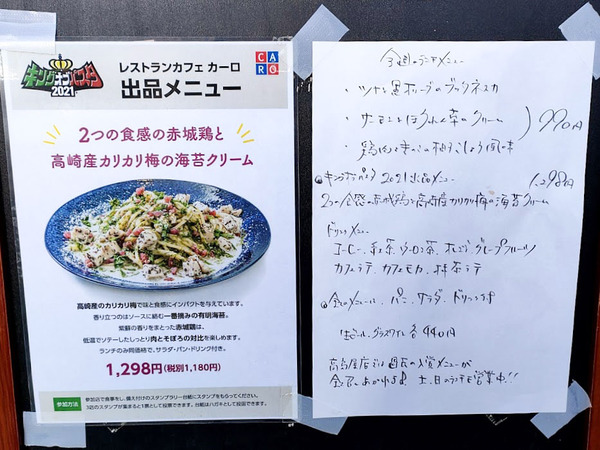 キングオブパスタ
2021
レストランカフェ カーロ
出品メニュー
CARO
2つの食感の赤城鶏と
高崎産カリカリ梅の海苔クリーム
高崎産のカリカリ梅で味と食感にインパクトを与えています。
香り立つのはソースに絡む一番摘みの有明海苔。
紫蘇の香りをまとった赤城鶏は、
低温でソテーしたしっとり肉とそぼろの対比を楽しめます。
ランチのみ同価格で、サラダ・パン・ドリンク付き。
1,298円(税別1,180円)
参加方法
参加店で食事をし、備え付けのスタンプラリー台紙にスタンプをもらってください。
3店のスタンプが集まると1票として投票できます。台紙はハガキとして投函できます。
今週のランチメニュー
・ツナと黒オリーブのプッタネスカ
・サーモンとほうれん草のクリーム
・鶏肉ときのこの柚子こしょう風味
990円
2021出品メニュー
1,298円
2つの食感の赤城鶏と高崎産カリカリ梅の海苔クリーム
ドリンクメニュー
コーヒー、紅茶、ウーロン茶、オレンジ、グレープフルーツ
カフェラテ、カフェモカ、抹茶ラテ
パン、サラダ、ドリンク付
生ビール、グラスワイン 各440円
土、日のランチも営業中!!